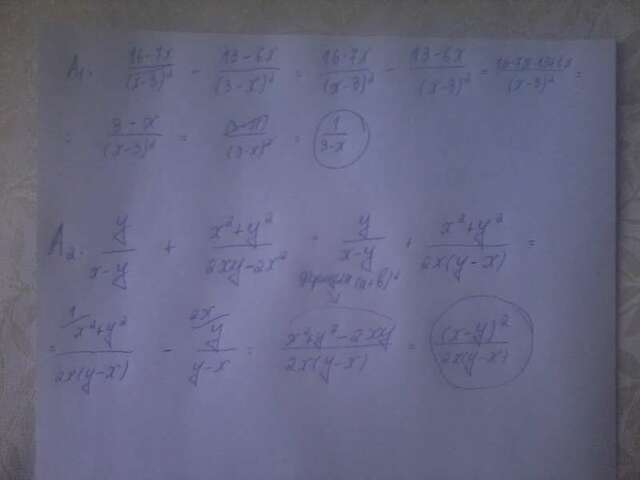 A1. (16-7x)/(x-3)² - (13-6x)/(3-x)² = (16-7x)/(x-3)² - (13-6x)/(x-3)² = (16-7x-13+6x)/(x-3)² =
= (3-x)/(x-3)² = (3-x)/(3-x)² = 1/(3-x)
A2. y/(x-y) + (x²+y²)/(2xy-2x²) = y/(x-y) + (x²+y²)/(2x(y-x)) =
(a-b)²
= 1/ (x²+y²)/(2x(y-x)) - 2x/ y/(y-x) = (x²+y²-2xy)/(2x(y-x)) = (x-y)²/(2x(y-x))